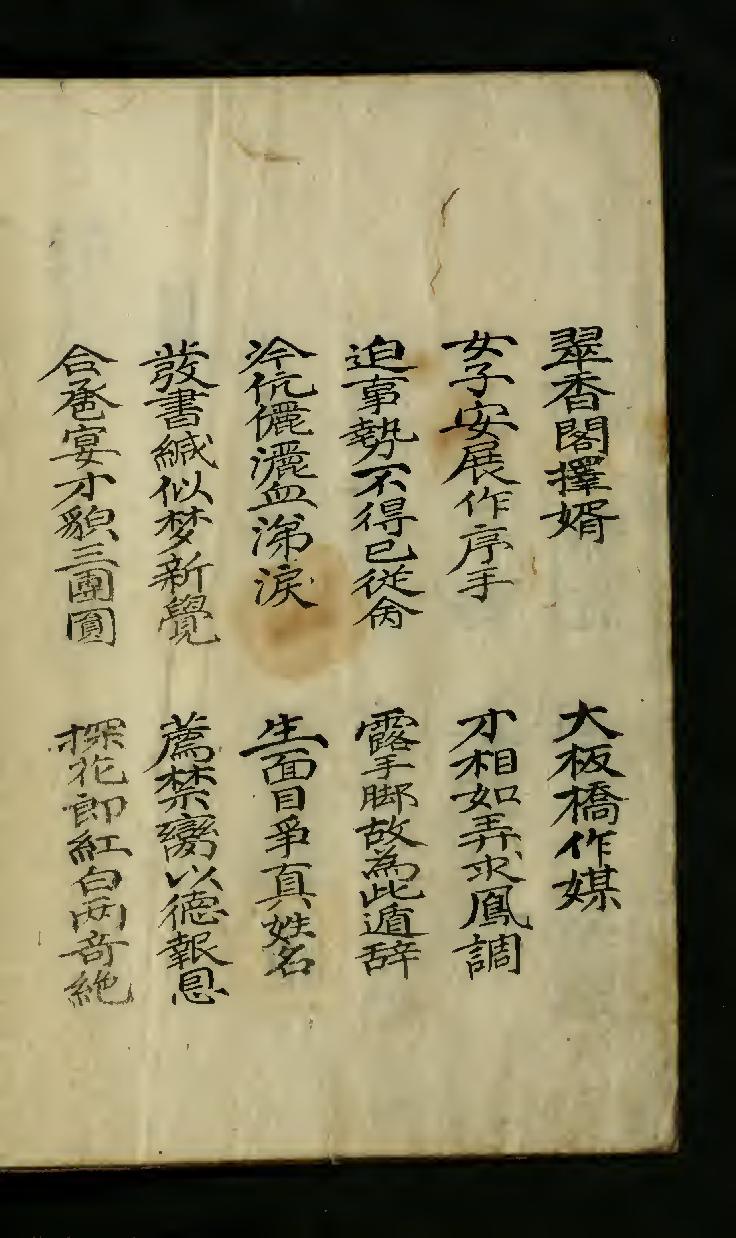 翠香閣擇婿 大板橋作媒
女子安展作序手 才相如弄求鳳調
迫事勢不得已從 露手脚故為此遁辞
伉儷灑血涕淚 生面目爭真姓名
發書緘似梦新覺 薦禁臠以德報恩
合巹宴才貌三團圓 探花郎紅白両奇絶